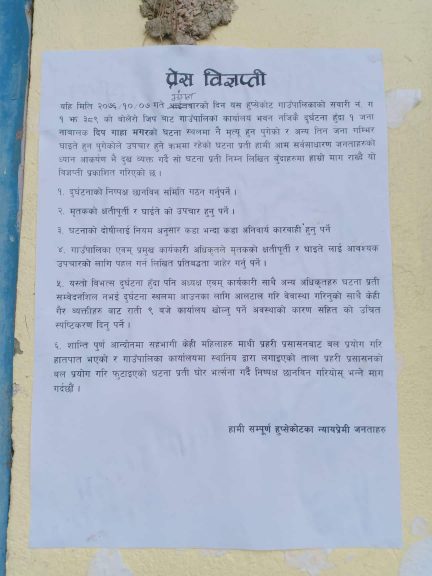 प्रेस विज्ञप्ती
मंगल
यहि मिति २०७६/१०/०७ गते आइतवारको दिन यस हुप्सेकोट गाउँपालिकाको सवारी न. ग
१ झ ३८९ को बोलेरो जिप बाट गाउँपालिका कार्यालय भवन नजिकै दुर्घटना हुँदा १ जना
नाबालक दिप गाहा मगरको घटना स्थलमा नै मृत्यू हुन पुगेको र अन्य तिन जना गम्भिर
घाइते हुन पुगेकोले उपचार हुने क्रममा रहेको घटना प्रती हामी आम सर्वसाधारण जनताहरुको
ध्यान आकर्षण भै दुख व्यक्त गर्दै सो घटना प्रती निम्न लिखित बुँदाहरुमा हाम्रो माग राख्दै यो
विज्ञप्ती प्रकाशित गरिएको छ ।
१. दुर्घटनाको निष्पक्ष छानविन समिति गठन गर्नुपर्ने ।
२. मृतकको क्षतीपूर्ती र घाईते को उपचार हुनु पर्ने ।
३. घटनाको दोषीलाई नियम अनुसार कडा भन्दा कडा अनिवार्य कारवाही हुनु पर्ने
४. गाउँपालिका एवम् प्रमुख कार्यकारी अधिकृतले मृतकको क्षतीपूर्ती र घाइते लाई आवश्यक
उपचारको लागि पहल गर्न लिखित प्रतिबद्धता जाहेर गर्नु पर्ने ।
५. यस्तो विभत्स दुर्घटना हुँदा पनि अध्यक्ष एवम् कार्यकारी साथै अन्य अधिकृतहरु घटना प्रती
सम्वेदनशिल नभई दुर्घटना स्थलमा आउनका लागि आलटाल गरि वेवास्था गरिनुको साथै केही
गैर व्यक्तीहरु बाट राती ९ बजे कार्यालय खोल्नु पर्ने अवस्थाको कारण सहित को उचित
स्पष्टिकरण दिनु पर्ने ।
६. शान्ति पुर्ण आन्दोनमा सहभागी केही महिलाहरु माथी प्रहरी प्रसासनबाट बल प्रयोग गरि
हातपात भएको र गाउँपालिका कार्यालयमा स्थानिय द्वारा लगाइएको ताला प्रहरी प्रसासनको
बल प्रयोग गरि फुटाइएको घटना प्रती घोर भर्त्सना गर्दै निष्पक्ष छानविन गरियोस् भन्ने माग
गर्दछौं ।
हामी सम्पूर्ण हुप्सेकोटका न्यायप्रेमी जनताहरु